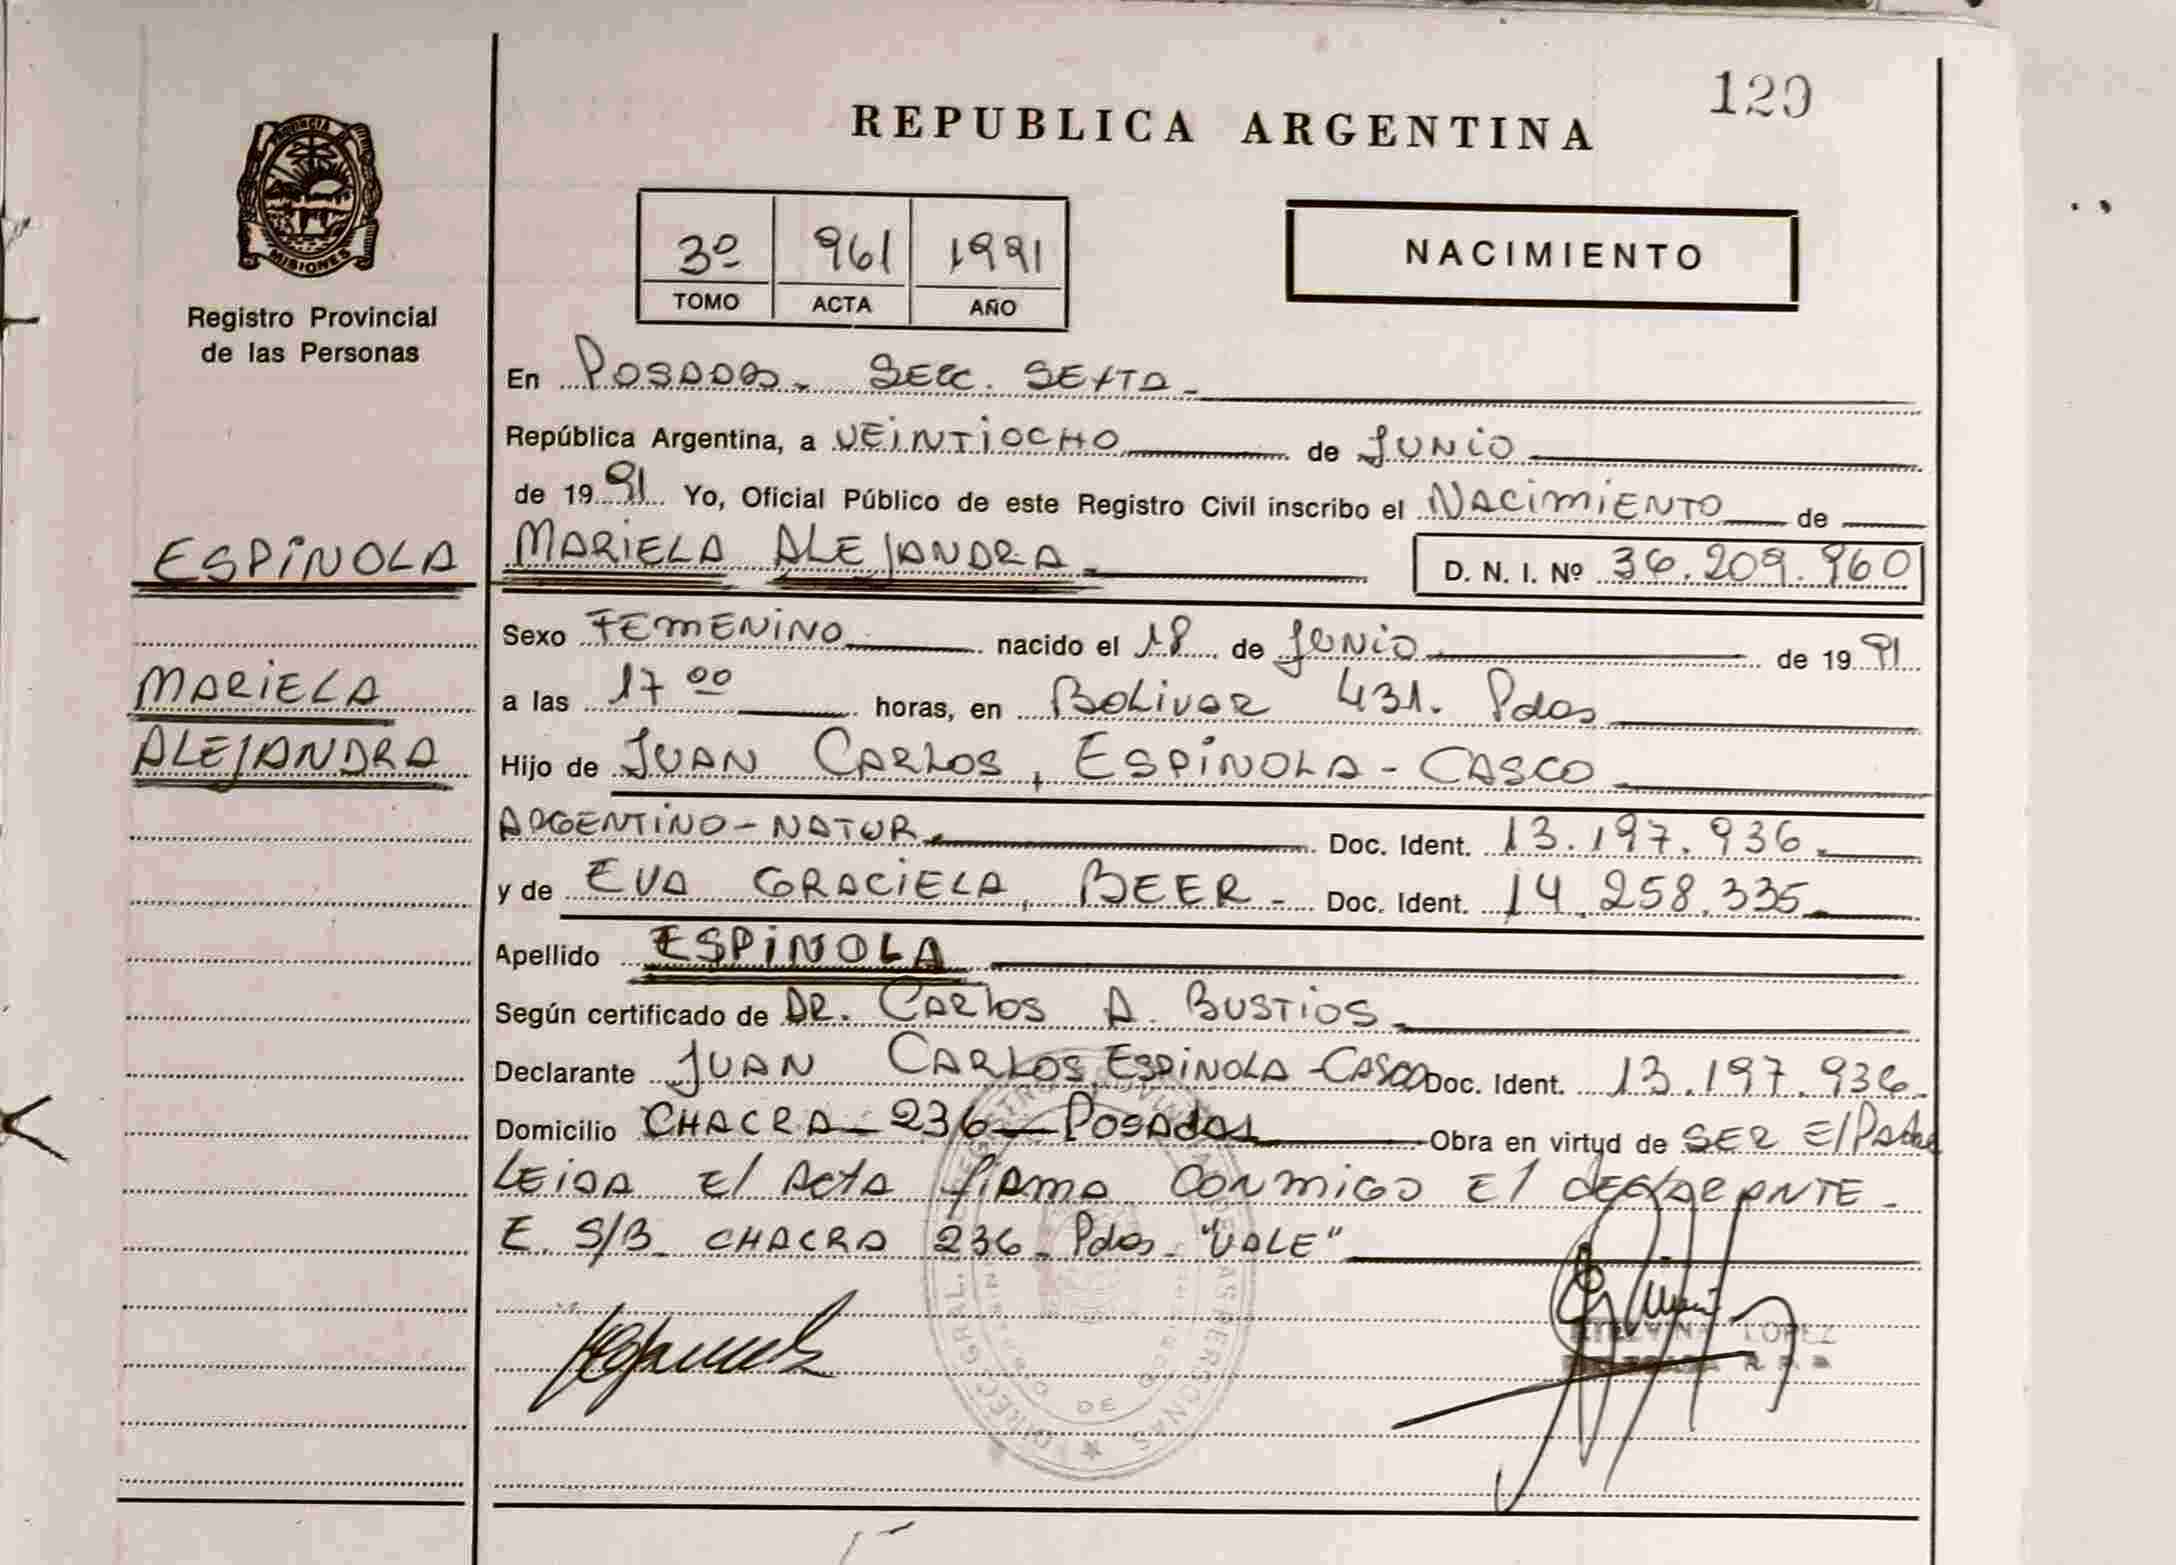 120
REPUBLICA ARGENTINA
PROVINCIA
MISIONES
Registro Provincial
de las Personas
3º 961 1991
TOMO ACTA AÑO
NACIMIENTO
En Posadas. Secc. Sexta
República Argentina, a VEINTIOCHO de JUNIO
de 1991 Yo, Oficial Público de este Registro Civil inscribo el NACIMIENTO de
ESPÍNOLA
MARIELA ALEJANDRA D. N. I. Nº 36.209.960
Sexo FEMENINO nacido el 18 de Junio de 1991
MARIELA
a las 17 00 horas, en Bolivar 431. Pdas
ALEJANDRA
Hijo de JUAN CARLOS, ESPÍNOLA - CASCO
ARGENTINO - NATUR. Doc. Ident. 13.197.936.
y de EVA GRACIELA, BEER - Doc. Ident. 14.258.335
Apellido ESPÍNOLA
Según certificado de DR. CARLOS A. BUSTIOS
Declarante JUAN CARLOS ESPINOLA - CASCO Doc. Ident. 13.197.936
Domicilio CHACRA 236 - POSADAS Obra en virtud de SER El Padre
LEIDA El Acta firma conmigo El declarante
E. S/B. CHACRA 236 - Pdas - "VALE"
LOPEZ
DE LAS PERSONAS